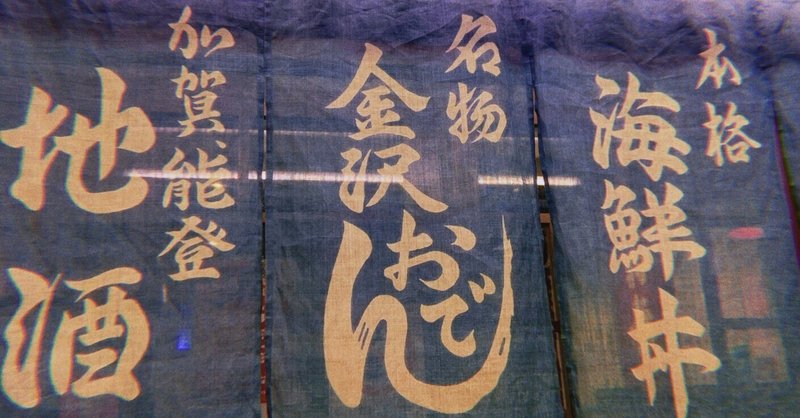 本格
海鮮丼
名物
金沢
おでん
加賀、能登
地酒